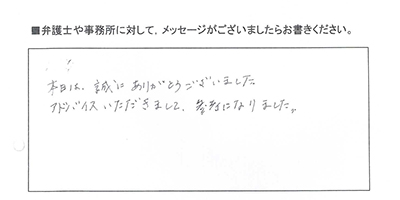 ■弁護士や事務所に対して，メッセージがございましたらお書きください。
本日は、誠にありがとうございました
アドバイスいただきまして、参考になりました。